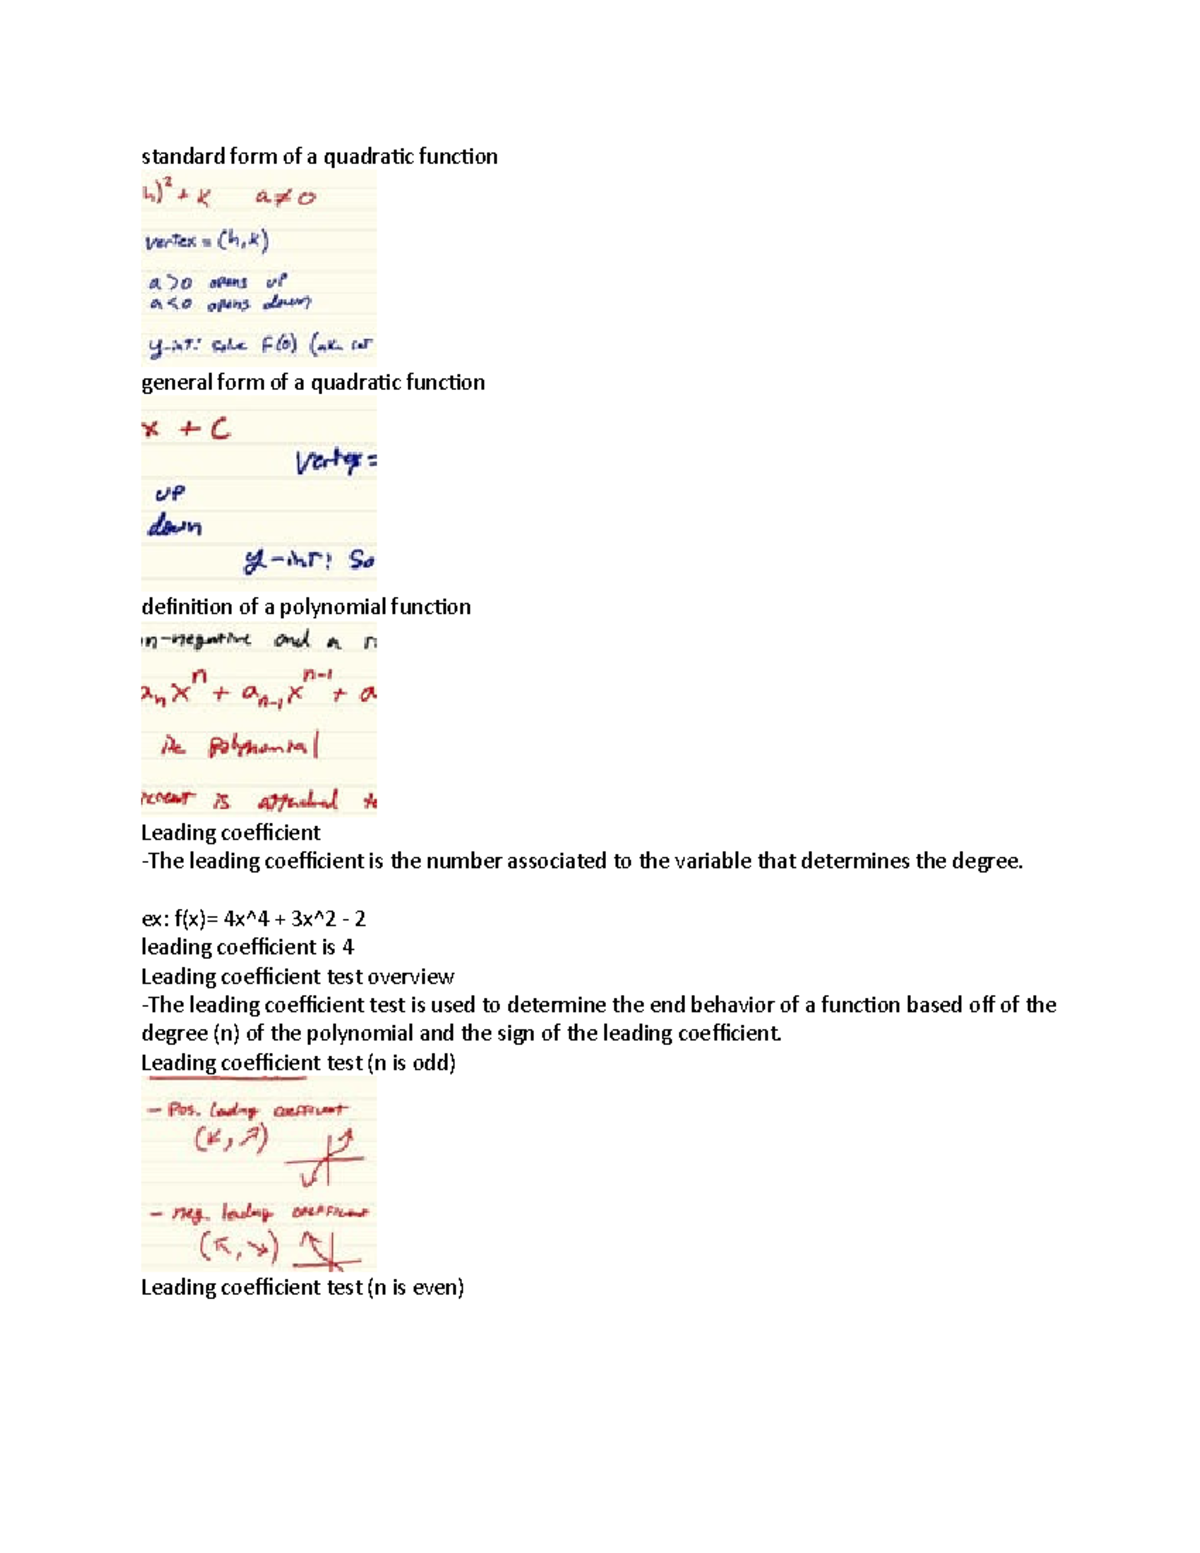 standard form of a quadratic function
h)² + k   a ≠ 0
vertex = (h,k)
a>0 opens up
a<0 opens down
y-int: solve F(0) (
general form of a quadratic function
x + C
Vertex =
up
down
y-int: So
definition of a polynomial function
n-negative and a
aₙxⁿ + aₙ₋₁xⁿ⁻¹ + a
polynomial
is attached
Leading coefficient
-The leading coefficient is the number associated to the variable that determines the degree.
ex: f(x)= 4x^4 + 3x^2 - 2
leading coefficient is 4
Leading coefficient test overview
-The leading coefficient test is used to determine the end behavior of a function based off of the
degree (n) of the polynomial and the sign of the leading coefficient.
Leading coefficient test (n is odd)
- Pos. leading coefficient
(↙,↗)
- neg. leading coefficient
(↖,↘)
Leading coefficient test (n is even)